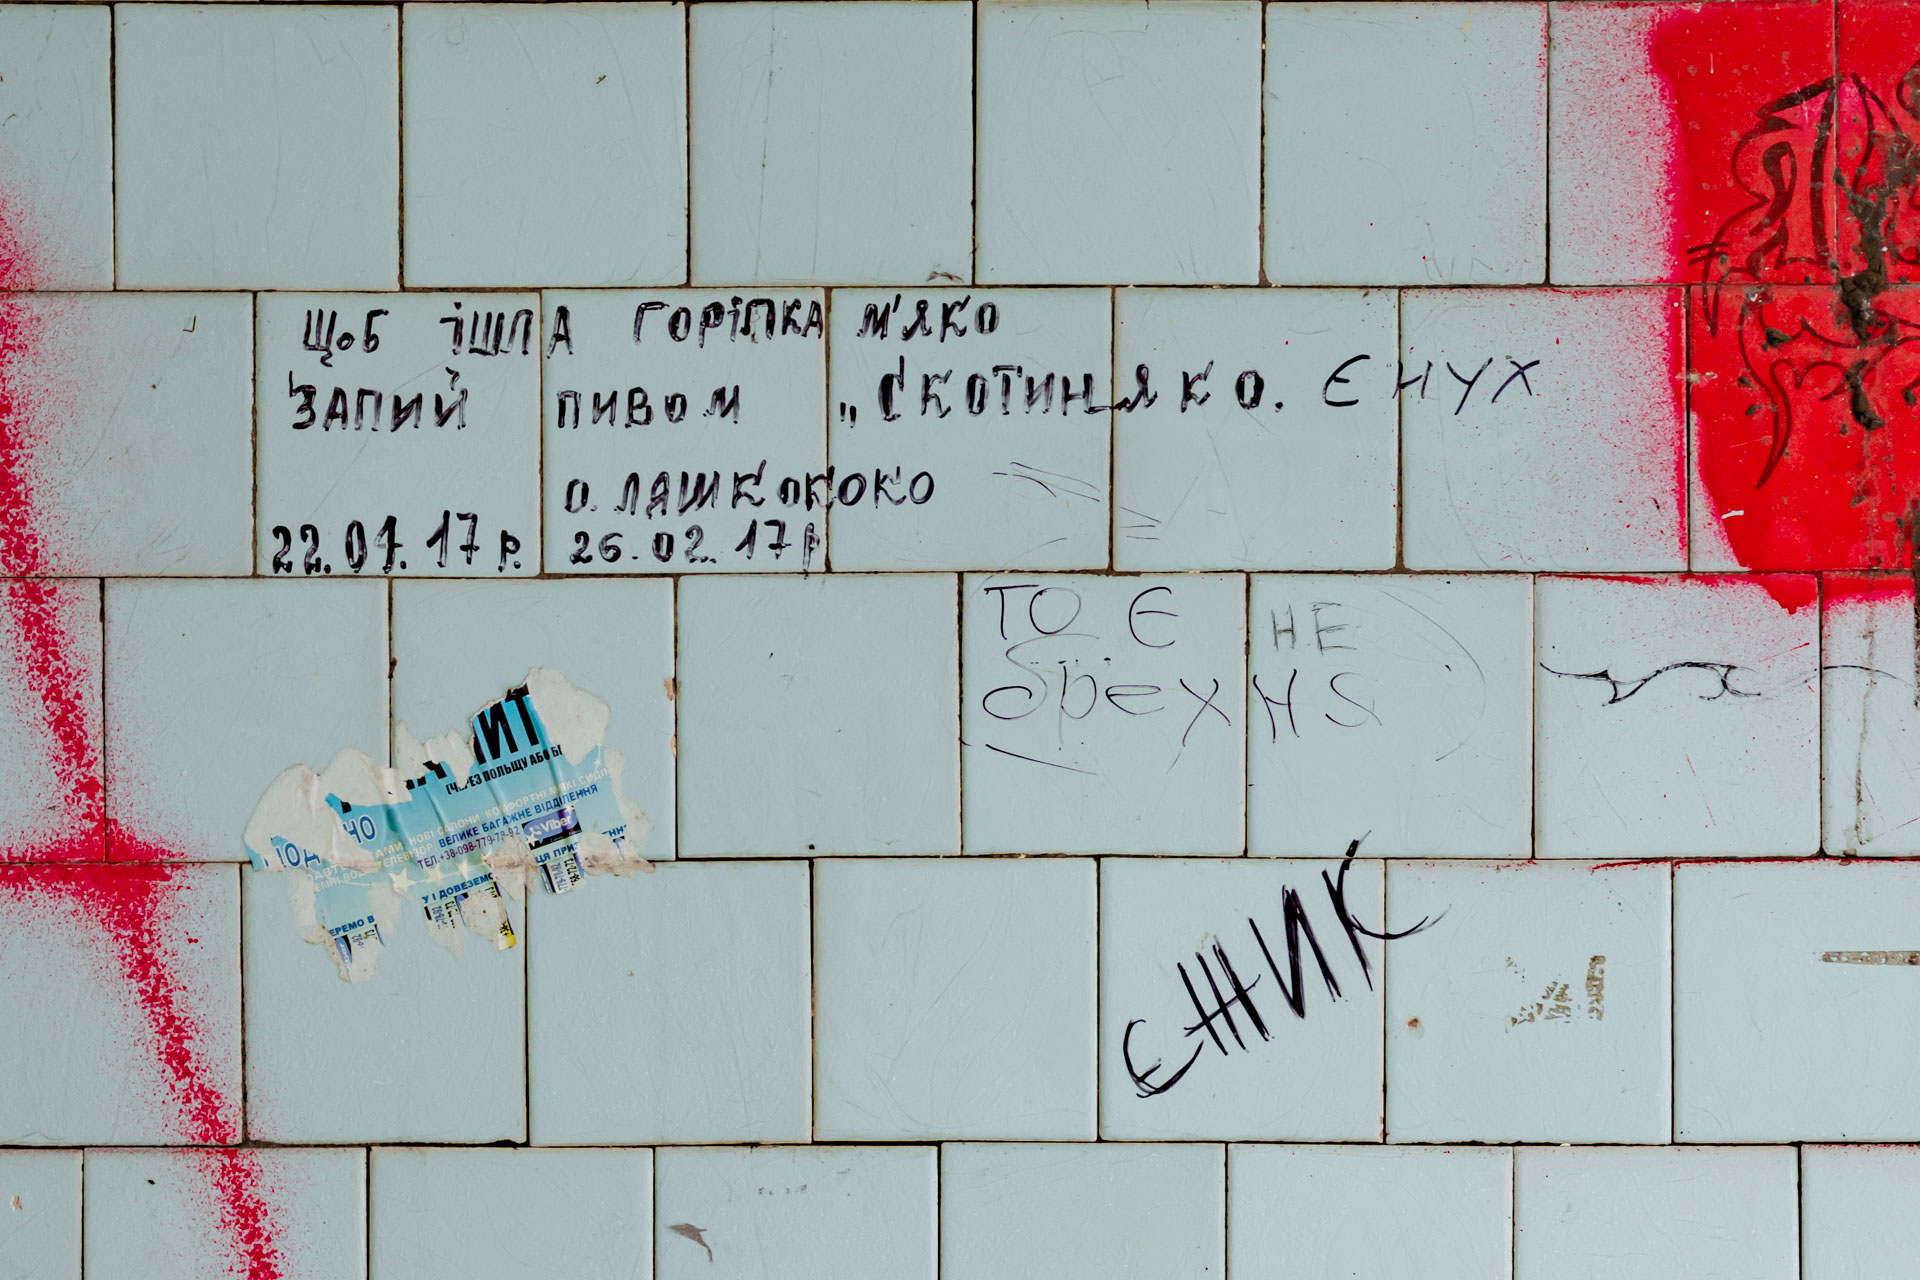 ЩОБ ІШЛА ГОРІЛКА М'ЯКО
ЗАПИЙ ПИВОМ „СКОТИНЯКО. ЄНУХ
О. ЛАШКОКОКО
22.01.17р. 26.02.17р
ТО Є НЕ
брехня
ЄЖИК
ИТ
(ЧЕРЕЗ ПОЛЬЩУ АБО БІ
НОВІ САЛОНИ КОМФОРТНІ М'ЯКІ СИДІ
ВЕЛИКЕ БАГАЖНЕ ВІДДІЛЕННЯ
ТЕЛ.+38-098-779-78-92 Viber
У І ДОВЕЗЕМО
ЕРЕМО В